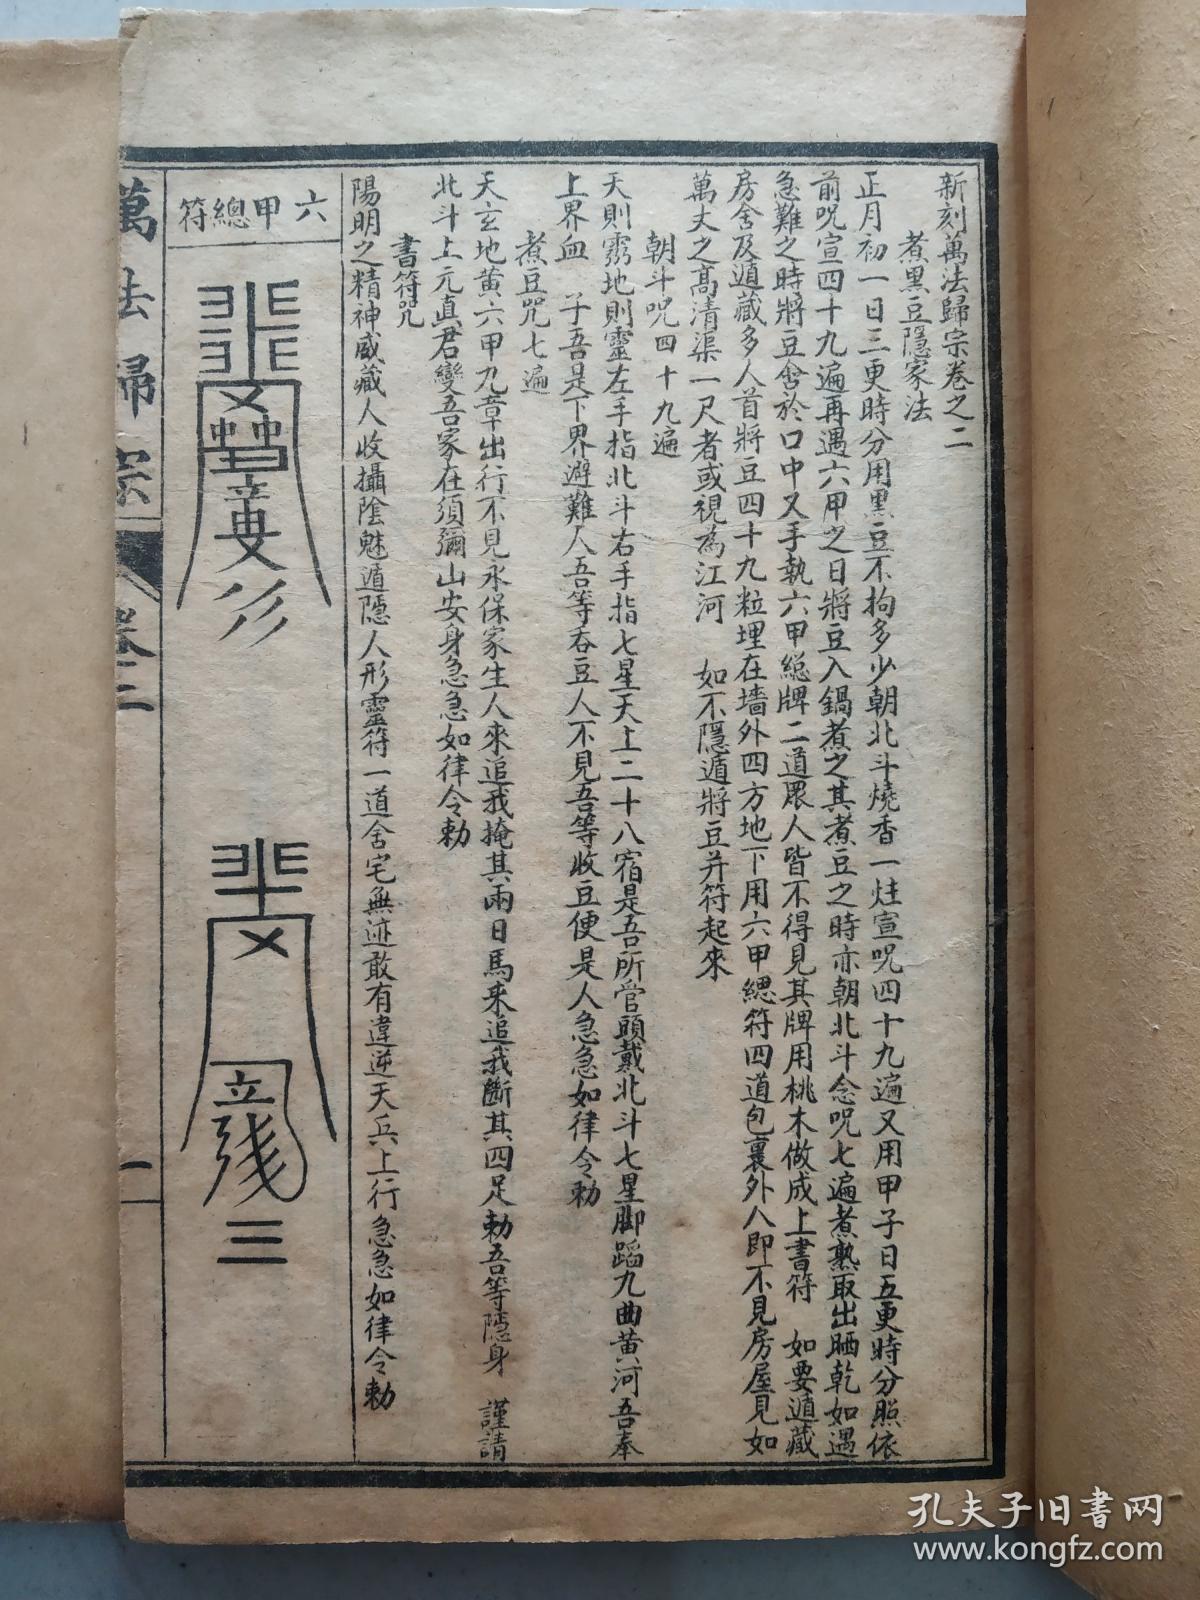 新刻萬法歸宗卷之二
煮黑豆隱家法
正月初一日三更時分用黑豆不拘多少朝北斗燒香一炷宣呪四十九遍又用甲子日五更時分照依
前呪宣四十九遍再遇六甲之日將豆入鍋煮之其煮豆之時亦朝北斗念呪七遍煮熟取出晒乾如遇
急難之時將豆含於口中又手執六甲總牌二道眾人皆不得見其牌用桃木做成上書符　如要遁藏
房舍及遁藏多人首將豆四十九粒埋在墻外四方地下用六甲總符四道包裹外人即不見房屋見如
萬丈之高清渠一尺者或視為江河　如不隱遁將豆并符起來
朝斗呪四十九遍
天則雰地則靈左手指北斗右手指七星天上二十八宿是吾所管頭戴北斗七星脚蹈九曲黄河吾奉
上界血　子吾是下界避難人吾等吞豆人不見吾等收豆便是人急急如律令勅
煮豆咒七遍
天玄地黄六甲九章出行不見永保家生人來追我掩其兩日馬來追我斷其四足勅吾等隱身　謹請
北斗上元真君變吾家在須彌山安身急急如律令勅
書符咒
陽明之精神威藏人收攝陰魅遁隱人形靈符一道舍宅無迹敢有違逆天兵上行急急如律令勅
六甲總符
萬法歸宗
卷二
一
孔夫子旧书网
www.kongfz.com